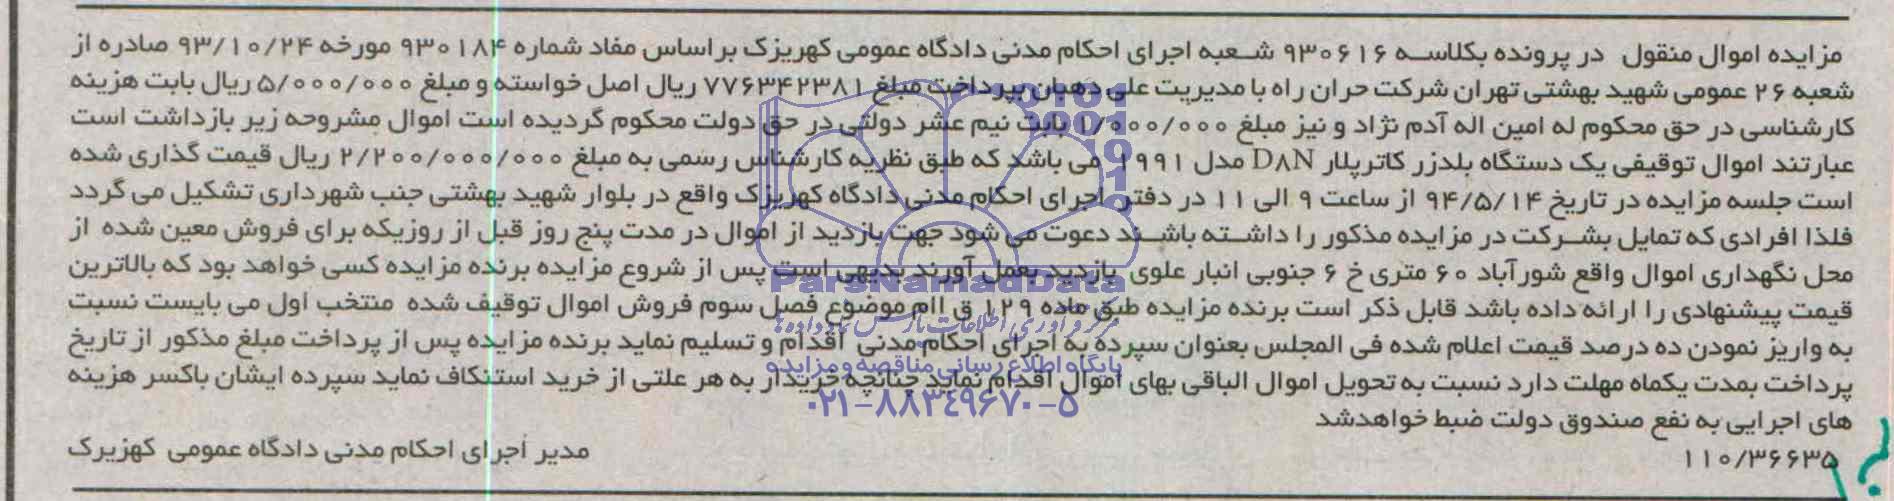 مزایده اموال منقول در پرونده بکلاسه ۹۳۰۶۱۶ شعبه اجرای احکام مدنی دادگاه عمومی کهریزک براساس مفاد شماره ۹۳۰۱۸۴ مورخه ۹۳/۱۰/۲۴ صادره از
شعبه ۲۶ عمومی شهید بهشتی تهران شرکت حران راه با مدیریت علی دهبان بپرداخت مبلغ ۷۷۶۳۴۲۳۸۱ ریال اصل خواسته و مبلغ ۵/۰۰۰/۰۰۰ ریال بابت هزینه
کارشناسی در حق محکوم له امین اله آدم نژاد و نیز مبلغ ۱/۰۰۰/۰۰۰ بابت نیم عشر دولتی در حق دولت محکوم گردیده است اموال مشروحه زیر بازداشت است
عبارتند اموال توقیفی یک دستگاه بلدزر کاترپلار D۸N مدل ۱۹۹۱ می باشد که طبق نظریه کارشناس رسمی به مبلغ ۲/۲۰۰/۰۰۰/۰۰۰ ریال قیمت گذاری شده
است جلسه مزایده در تاریخ ۹۴/۵/۱۴ از ساعت ۹ الی ۱۱ در دفتر اجرای احکام مدنی دادگاه کهریزک واقع در بلوار شهید بهشتی جنب شهرداری تشکیل می گردد
فلذا افرادی که تمایل بشرکت در مزایده مذکور را داشته باشند دعوت می شود جهت بازدید از اموال در مدت پنج روز قبل از روزیکه برای فروش معین شده از
محل نگهداری اموال واقع شورآباد ۶۰ متری خ ۶ جنوبی انبار علوی بازدید بعمل آورند بدیهی است پس از شروع مزایده برنده مزایده کسی خواهد بود که بالاترین
قیمت پیشنهادی را ارائه داده باشد قابل ذکر است برنده مزایده طبق ماده ۱۲۹ ق اام موضوع فصل سوم فروش اموال توقیف شده منتخب اول می بایست نسبت
به واریز نمودن ده درصد قیمت اعلام شده فی المجلس بعنوان سپرده به اجرای احکام مدنی اقدام و تسلیم نماید برنده مزایده پس از پرداخت مبلغ مذکور از تاریخ
پرداخت بمدت یکماه مهلت دارد نسبت به تحویل اموال الباقی بهای اموال اقدام نماید چنانچه خریدار به هر علتی از خرید استنکاف نماید سپرده ایشان باکسر هزینه
های اجرایی به نفع صندوق دولت ضبط خواهدشد
۱۱۰/۳۶۶۳۵
مدیر اجرای احکام مدنی دادگاه عمومی کهزیرک
ParaNamadData
مرکز فرآوری اطلاعات پارس نماد داده ها
پایگاه اطلاع رسانی مناقصه و مزایده
۰۲۱-۸۸۳۴۹۶۷۰-۵